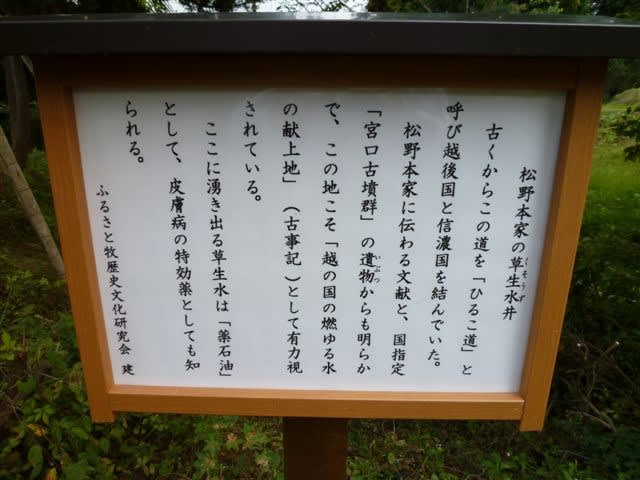 松野本家の草生水井
くそうず
古くからこの道を「ひるこ道」と
呼び越後国と信濃国を結んでいた。
松野本家に伝わる文献と、国指定
「宮口古墳群」の遺物からも明らか
いぶつ
で、この地こそ「越の国の燃ゆる水
の献上地」（古事記）として有力視
されている。
ここに湧き出る草生水は「薬石油」
として、皮膚病の特効薬としても知
られる。
ふるさと牧歴史文化研究会 建